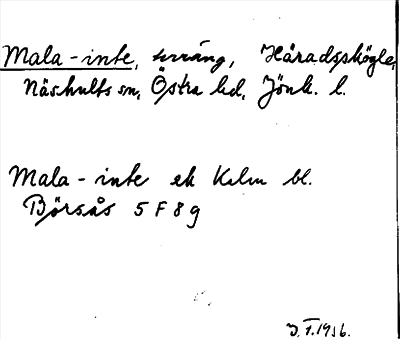 Mala-inte, terräng, Häradsskögle,
Näshults sn, Östra hd, Jönk. l.
Mala-inte ek Kalm bl.
Börsås 5 F 8 g
J. I. 1956.